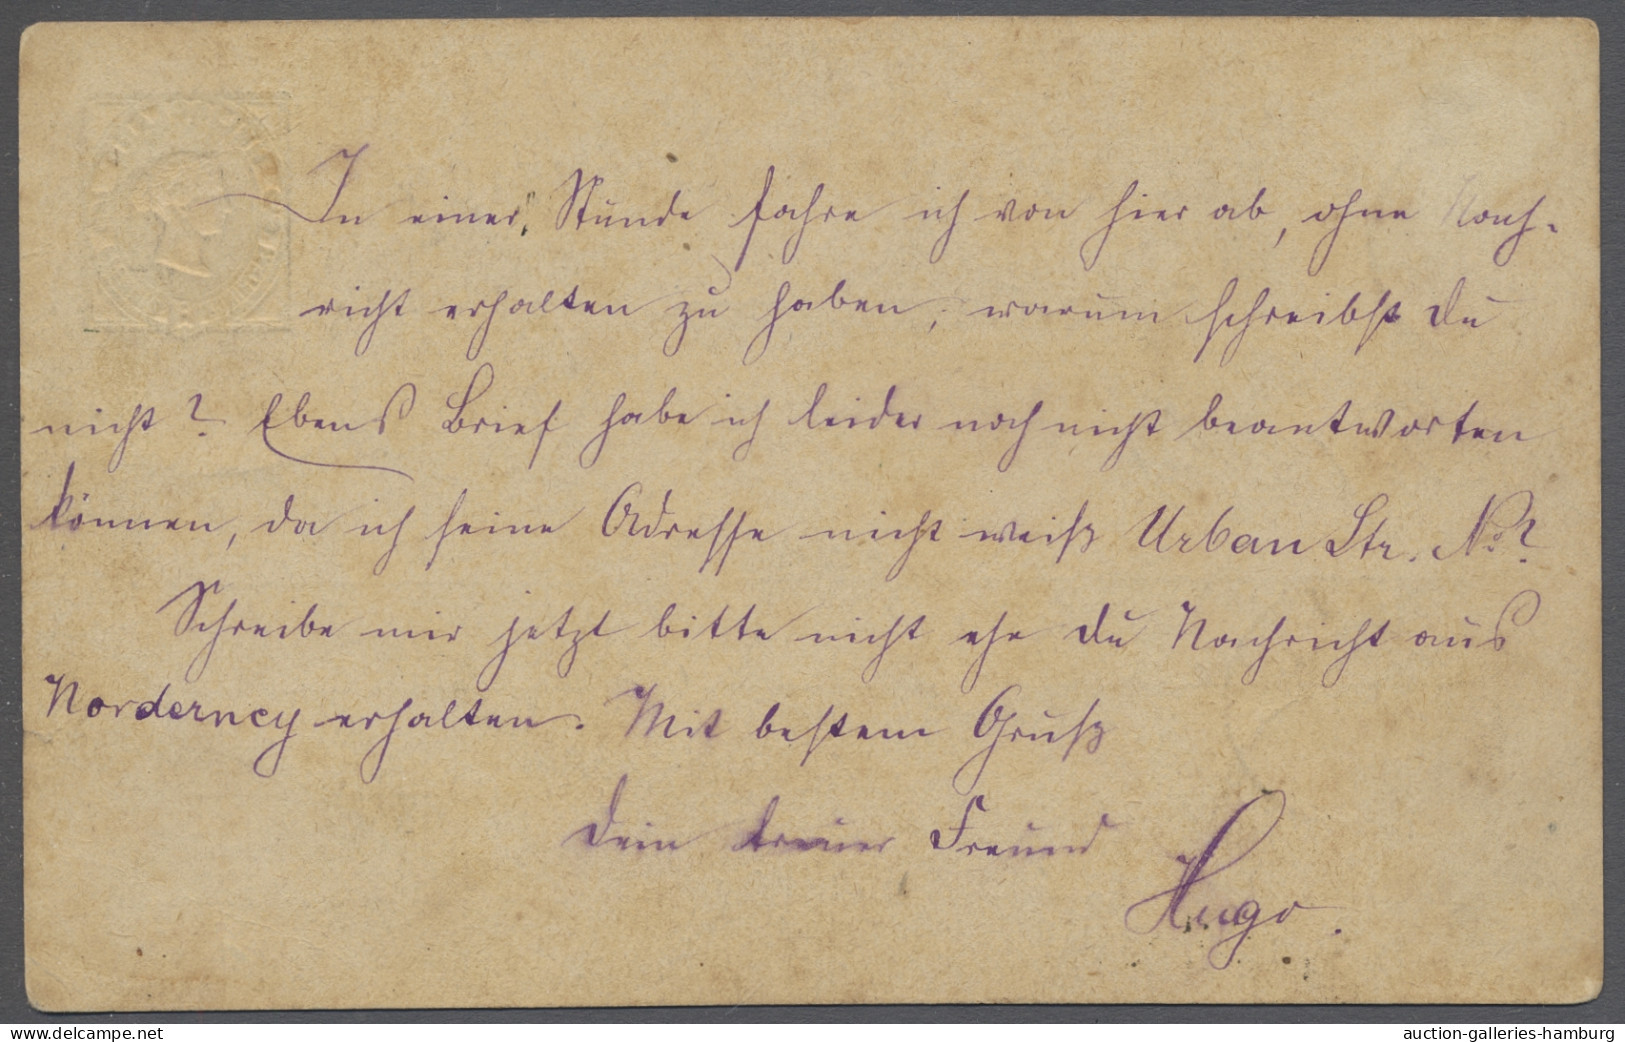 In einer Stunde fahre ich von hier ab, ohne Nach-
richt erhalten zu haben, warum schreibst Du
nicht? Ebens Brief habe ich leider noch nicht beantworten
können, da ich seine Adresse nicht weiß Urban Str. No?
Schreibe mir jetzt bitte nicht ehe Du Nachricht aus
Norderney erhalten. Mit bestem Gruß
Dein treuer Freund
Hugo.
www.delcampe.net
auction-galleries-hamburg